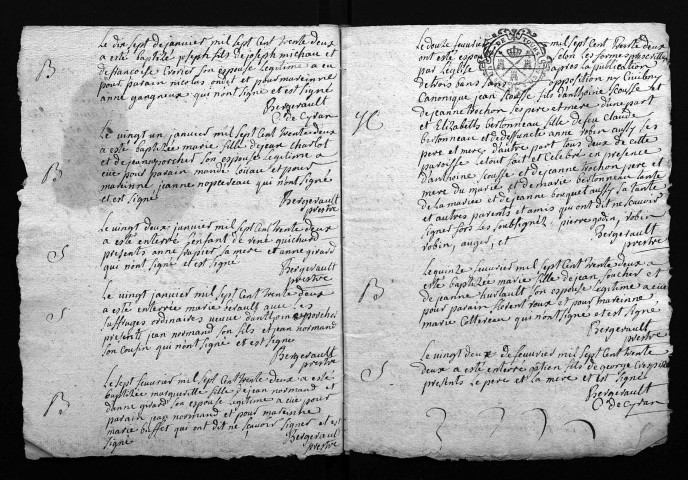 Le dix sept de janvier mil sept cent trente deux
B a esté baptisé joseph fils de joseph micheau et
de francoise son espouse legitime a eu
pour parain nicolas et pour mareinne
anne qui nont signé et est signé
Bergerault
de Cyran
Le vingt un janvier mil sept cent trente deux
B a esté baptizée marie fille de jean charlot
et de jeanne porcher son espouse legitime a
eue pour parain et pour
mareinne jeanne qui nont signé
et est signé
Bergerault
prestre
Le vingt deux janvier mil sept cent trente deux
S a esté enterré lenfant de rené guichard
presents anne frapier sa mere et anne girard
qui nont signé et est signé
Bergerault
prestre
Le vingt janvier mil sept cent trente deux
S a esté enterrée marie berault avec les
suffrages ordinaires veuve
presents jean normand son fils et jean normand
son cousin qui nont signé et est signé
Bergerault
prestre
Le sept feuvrier mil sept cent trente deux a esté
B baptizée fille de jean normand et
danne girard son espouse legitime a eue pour
parain jean normand et pour mareine
marie buffet qui ont dit ne scavoir signer et est
signé
Bergerault
prestre
Le douze feuvrier mil sept cent trente deux
ont esté espousé selon les formes prescrittes
par leglise apres la publication
de trois bans sans opposition ny
canonique jean scousse fils danthoine scousse et
de jeanne rochon ses pere et mere dune part
et Elizabeth bertonneau fille de feu claude
bertonneau et de deffuncte anne robin aussy ses
pere et mere d'autre part tous deux de cette
paroisse le tout fait et celebré en presence
danthoine scousse et de jeanne rochon pere et
mere du marié et de marie bertonneau tante
de la mariée et de jeanne bosquet aussy sa tante
et autres parents et amis qui ont dit ne scavoir
signer fors les soubsignez pierre godin, robin
robin, auger, et
Bergerault
prestre
Le quinze feuvrier mil sept cent trente deux a
B esté baptizée marie fille de jean foucher et
de jeanne son espouse legitime a eue
pour parain roux et pour mareinne
marie Cottereau qui nont signé et est signé
Bergerault
prestre
Le vingt deux de feuvrier mil sept cent trente
S deux a esté enterré fils de george
presents le pere et la mere et est signé
Bergerault
de Cyran